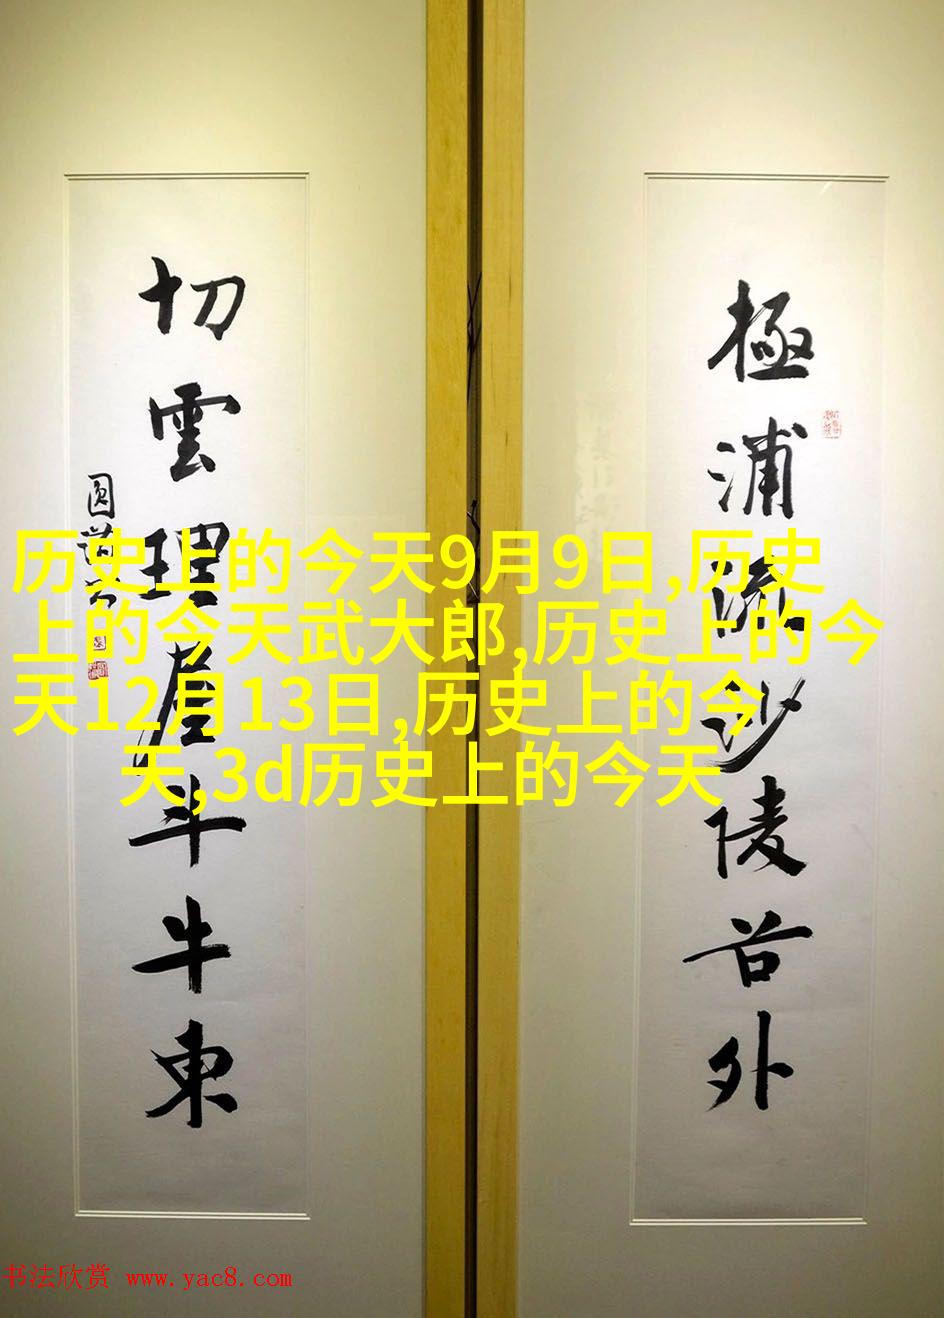 極浦流沙陵谷外
切雲理斗牛東
历史上的今天9月9日,历史
上的今天武大郎,历史上的今
天12月13日,历史上的今
天,3d历史上的今天
书法欣赏 www.yac8.com